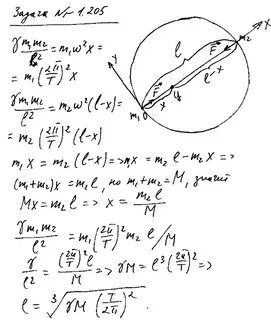 Задача № 1.205
γ m₁m₂ / l² = m₁ω²x =
= m₁ (2π/T)² x
γ m₁m₂ / l² = m₂ω²(l-x) =
= m₂ (2π/T)² (l-x)
m₁x = m₂(l-x) => m₁x = m₂l - m₂x =>
(m₁+m₂)x = m₂l, но m₁+m₂ = M, значит
Mx = m₂l => x = m₂l / M
γ m₁m₂ / l² = m₁ (2π/T)² m₂ l/M
γ / l² = (2π/T)² l / M => γM = l³ (2π/T)² =>
l = ∛(γM (T/2π)²).
m₂
X
l
F
l-x
Y
F
x
m₁